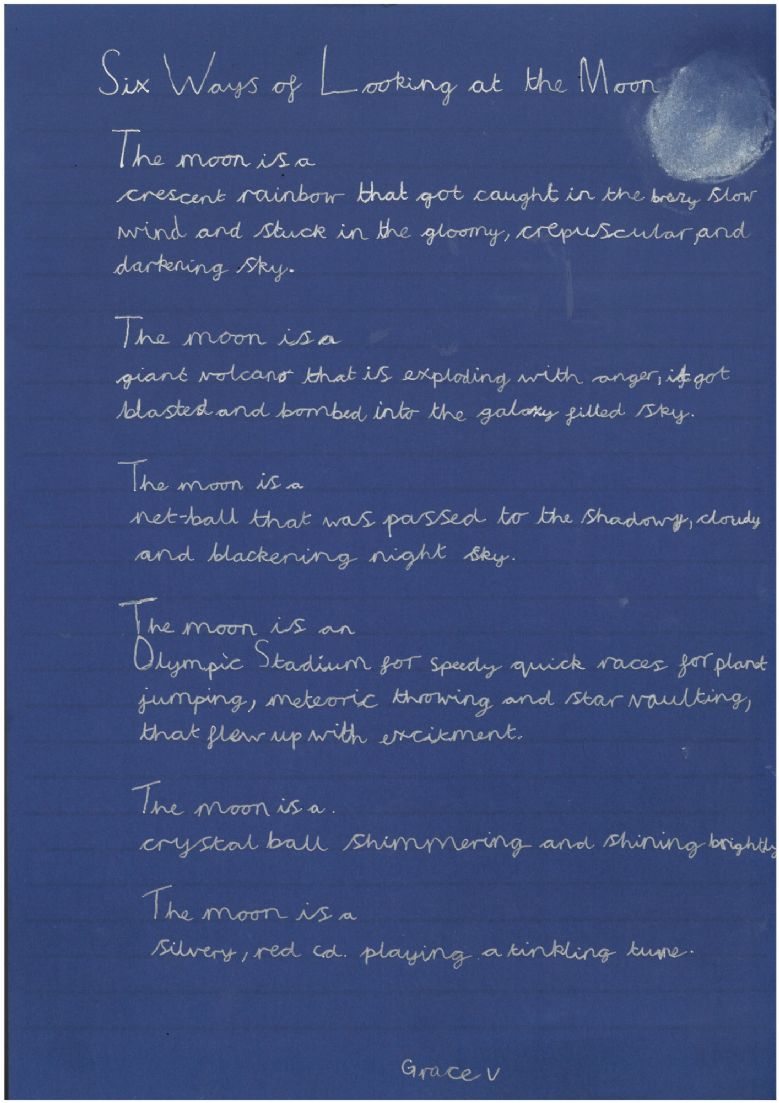 Six Ways of Looking at the Moon
The moon is a
crescent rainbow that got caught in the brezy slow
wind and stuck in the gloomy, crepuscular, and
darkening sky.
The moon is a
giant volcano that is exploding with anger, it got
blasted and bombed into the galaxy filled sky.
The moon is a
net-ball that was passed to the shadowy, cloudy
and blackening night sky.
The moon is an
Olympic Stadium for speedy quick races for planet
jumping, meteoric throwing and star vaulting,
that flew up with excitment.
The moon is a.
crystal ball shimmering and shining brightly
The moon is a
silvery, red cd. playing a tinkling tune.
Grace V